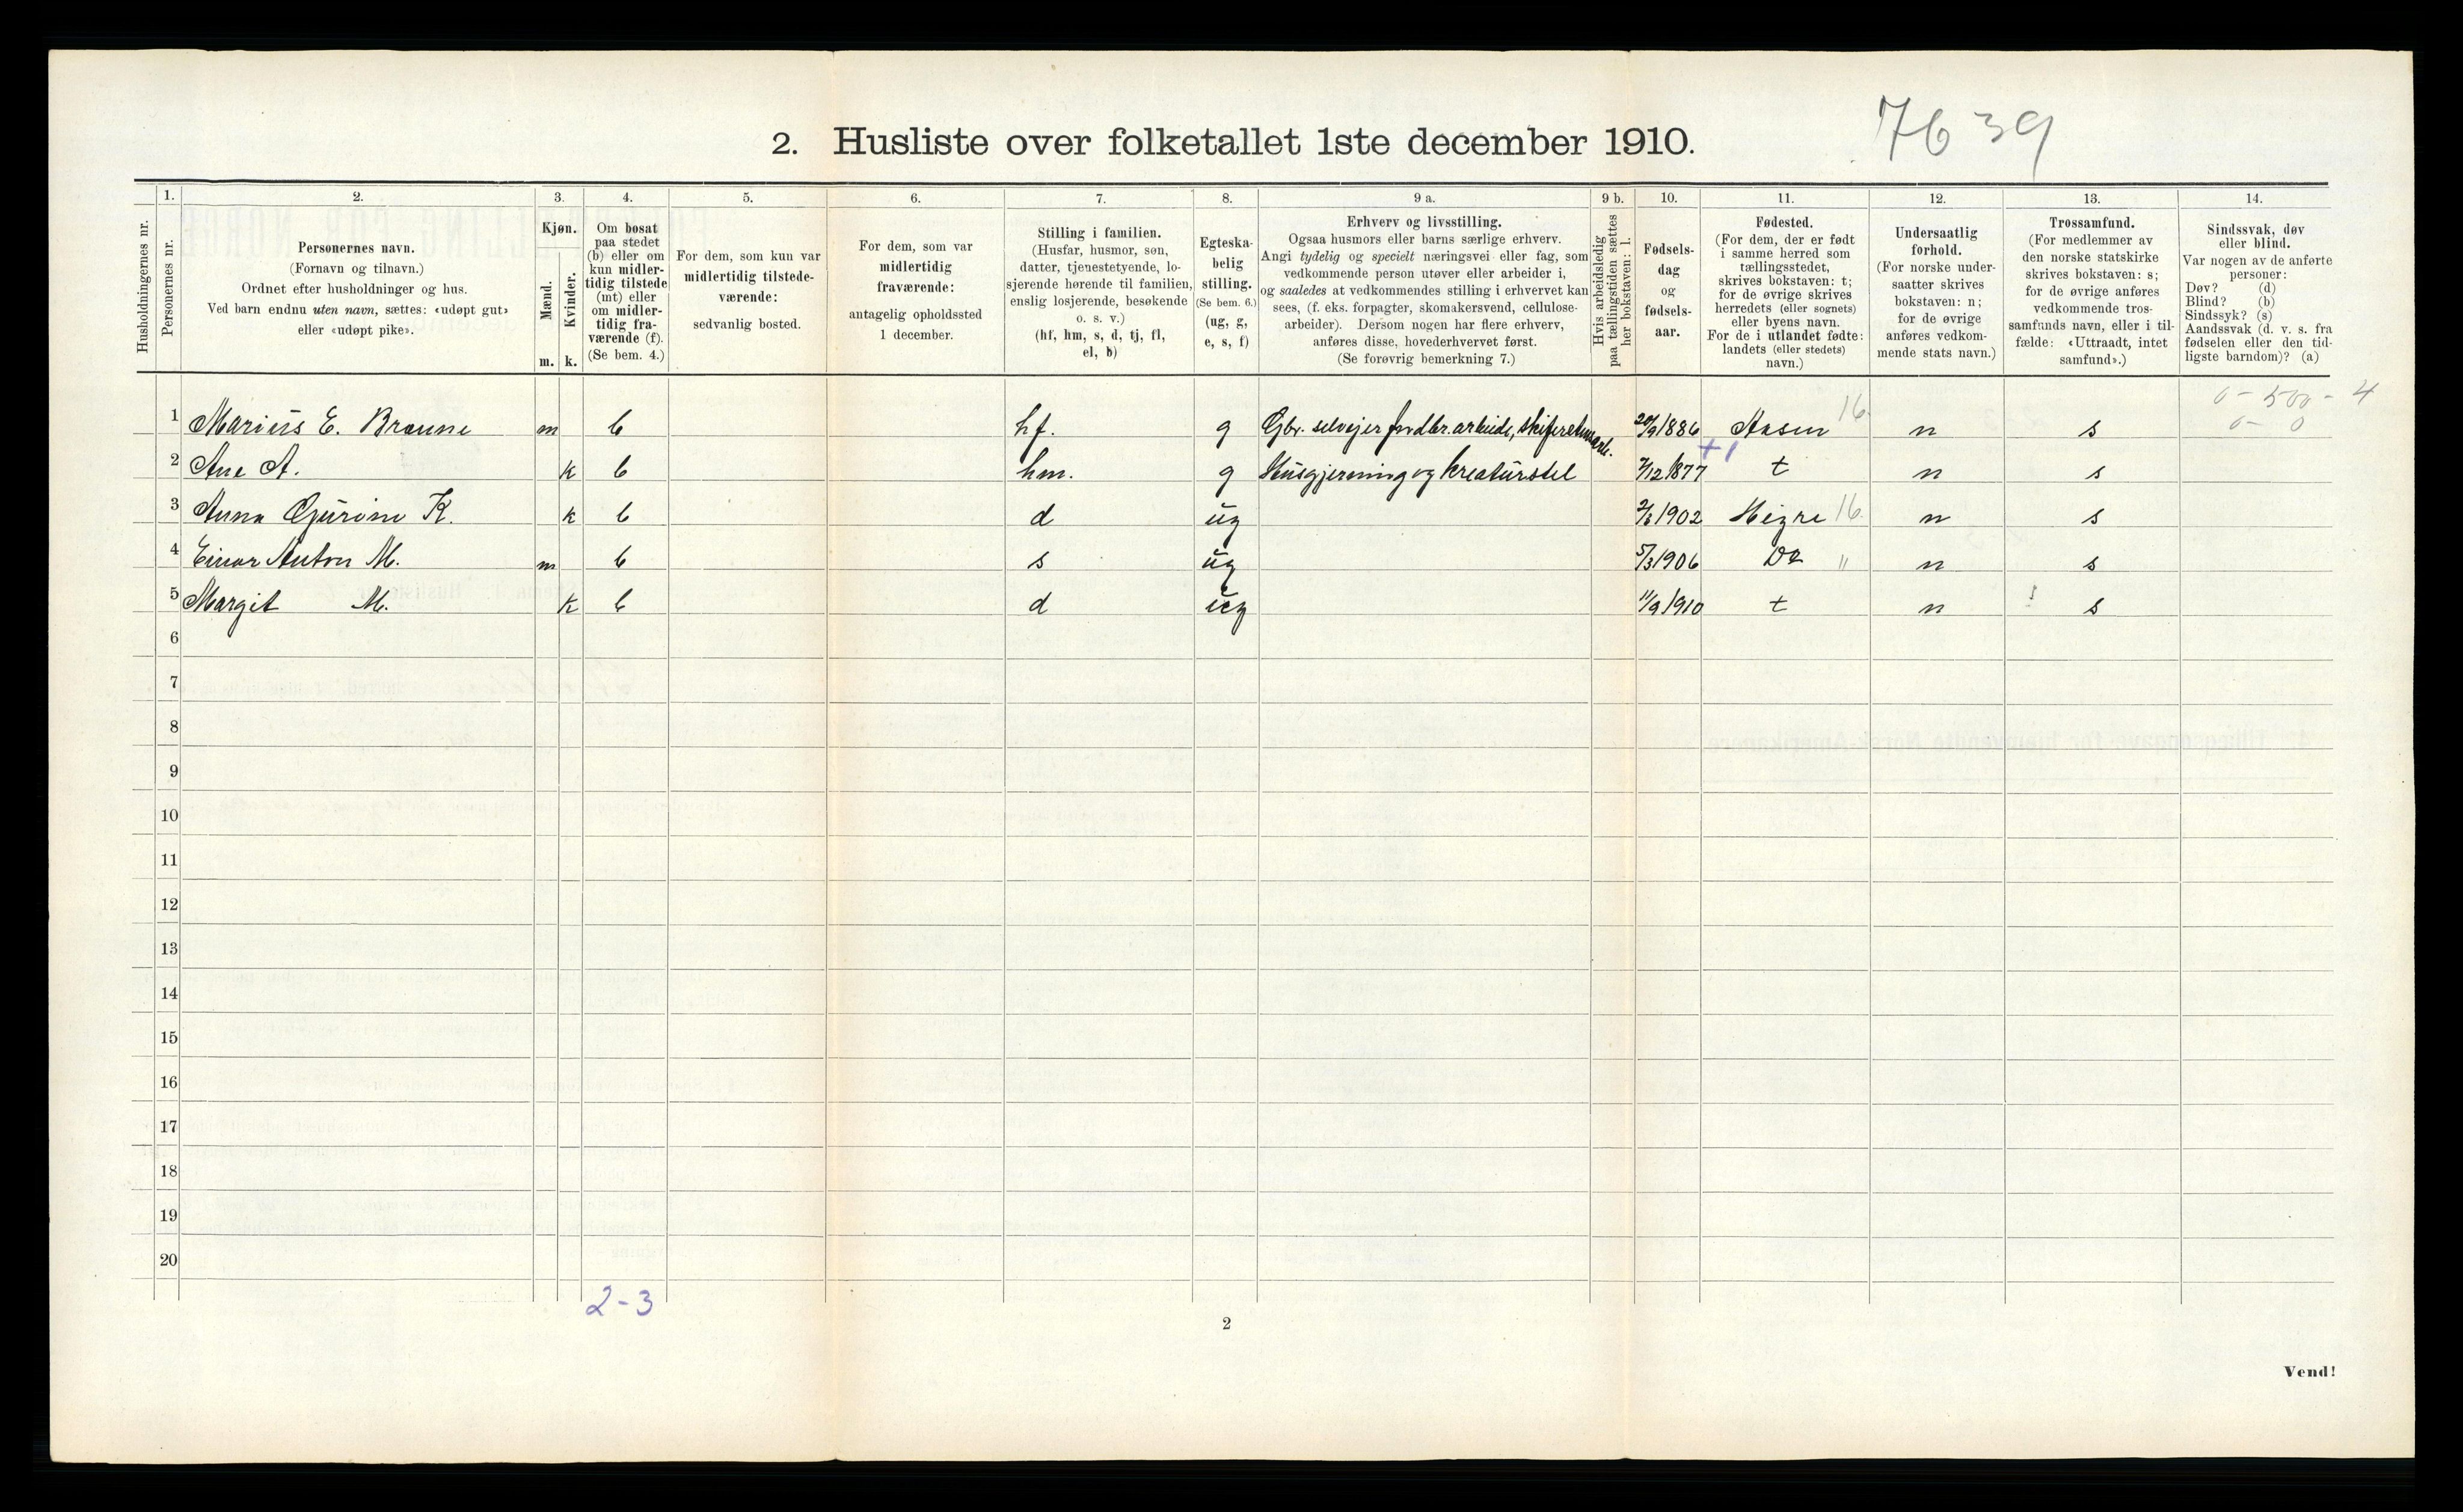 7639
2. Husliste over folketallet 1ste december 1910.
Husholdningernes nr.
1.
Personernes nr.
2.
Personernes navn.
(Fornavn og tilnavn.)
Ordnet efter husholdninger og hus.
Ved barn endnu uten navn, sættes: «udøpt gut»
eller «udøpt pike».
3.
Kjøn.
Mænd.
Kvinder.
m. k.
4.
Om bosat
paa stedet
(b) eller om
kun midler-
tidig tilstede
(mt) eller
om midler-
tidig fra-
værende (f).
(Se bem. 4.)
5.
For dem, som kun var
midlertidig tilstede-
værende:
sedvanlig bosted.
6.
For dem, som var
midlertidig
fraværende:
antagelig opholdssted
1 december.
7.
Stilling i familien.
(Husfar, husmor, søn,
datter, tjenestetyende, lo-
sjerende hørende til familien,
enslig losjerende, besøkende
o. s. v.)
(hf, hm, s, d, tj, fl,
el, b)
8.
Egteska-
belig
stilling.
(Se bem. 6.)
(ug, g,
e, s, f)
9 a.
Erhverv og livsstilling.
Ogsaa husmors eller barns særlige erhverv.
Angi tydelig og specielt næringsvei eller fag, som
vedkommende person utøver eller arbeider i,
og saaledes at vedkommendes stilling i erhvervet kan
sees, (f. eks. forpagter, skomakersvend, cellulose-
arbeider). Dersom nogen har flere erhverv,
anføres disse, hovederhvervet først.
(Se forøvrig bemerkning 7.)
9 b.
Hvis arbeidsledig
paa tællingstiden sættes
her bokstaven: l.
10.
Fødsels-
dag
og
fødsels-
aar.
11.
Fødested.
(For dem, der er født
i samme herred som
tællingsstedet,
skrives bokstaven: t;
for de øvrige skrives
herredets (eller sognets)
eller byens navn.
For de i utlandet fødte:
landets (eller stedets)
navn.)
12.
Undersaatlig
forhold.
(For norske under-
saatter skrives
bokstaven: n;
for de øvrige
anføres vedkom-
mende stats navn.)
13.
Trossamfund.
(For medlemmer av
den norske statskirke
skrives bokstaven: s;
for de øvrige anføres
vedkommende tros-
samfunds navn, eller i til-
fælde: «Uttraadt, intet
samfund».)
14.
Sindssvak, døv
eller blind.
Var nogen av de anførte
personer:
Døv? (d)
Blind? (b)
Sindssyk? (s)
Aandssvak (d. v. s. fra
fødselen eller den tid-
ligste barndom)? (a)
0 - 500 - 4
0 - 0
1 Marius E. Braune m b hf. g Gbr. selveier jordbr. arbeide, 20/9 1886 Aasen 16 n s
+1
2 Ane A. k b hm. g Husgjerning og kreaturstel 7/12 1877 t n s
3 Anna Gurine K. k b d ug 1902 Hegre 16 n s
4 Einar Anton M. m b s ug 5/3 1906 Do " n s
5 Margit M. k b d ug 11/9 1910 t n s
6
7
8
9
10
11
12
13
14
15
16
17
18
19
20
2-3
2
Vend!